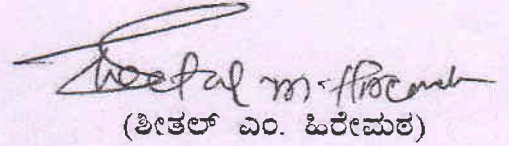 Sheetal M. Hiremath
(ಶೀತಲ್ ಎಂ. ಹಿರೇಮಠ)